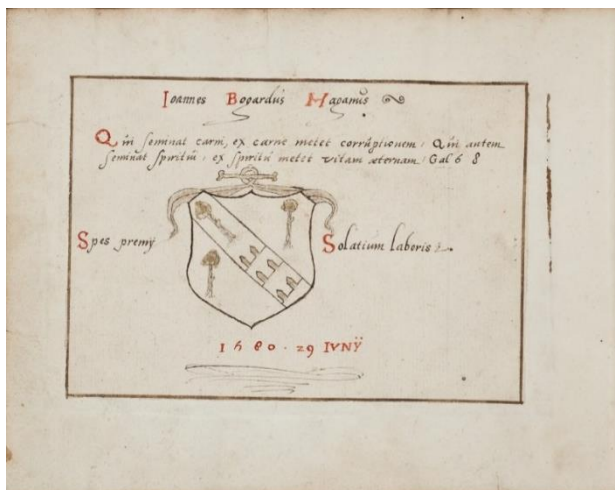 Ioannes Bogardus Maganus
Qui seminat carni, ex carne metet corruptionem. Qui autem
seminat spiritui, ex spiritu metet vitam æternam. Gal 6 8
Spes premÿ
Solatium laboris.
1580 . 29 IVNŸ